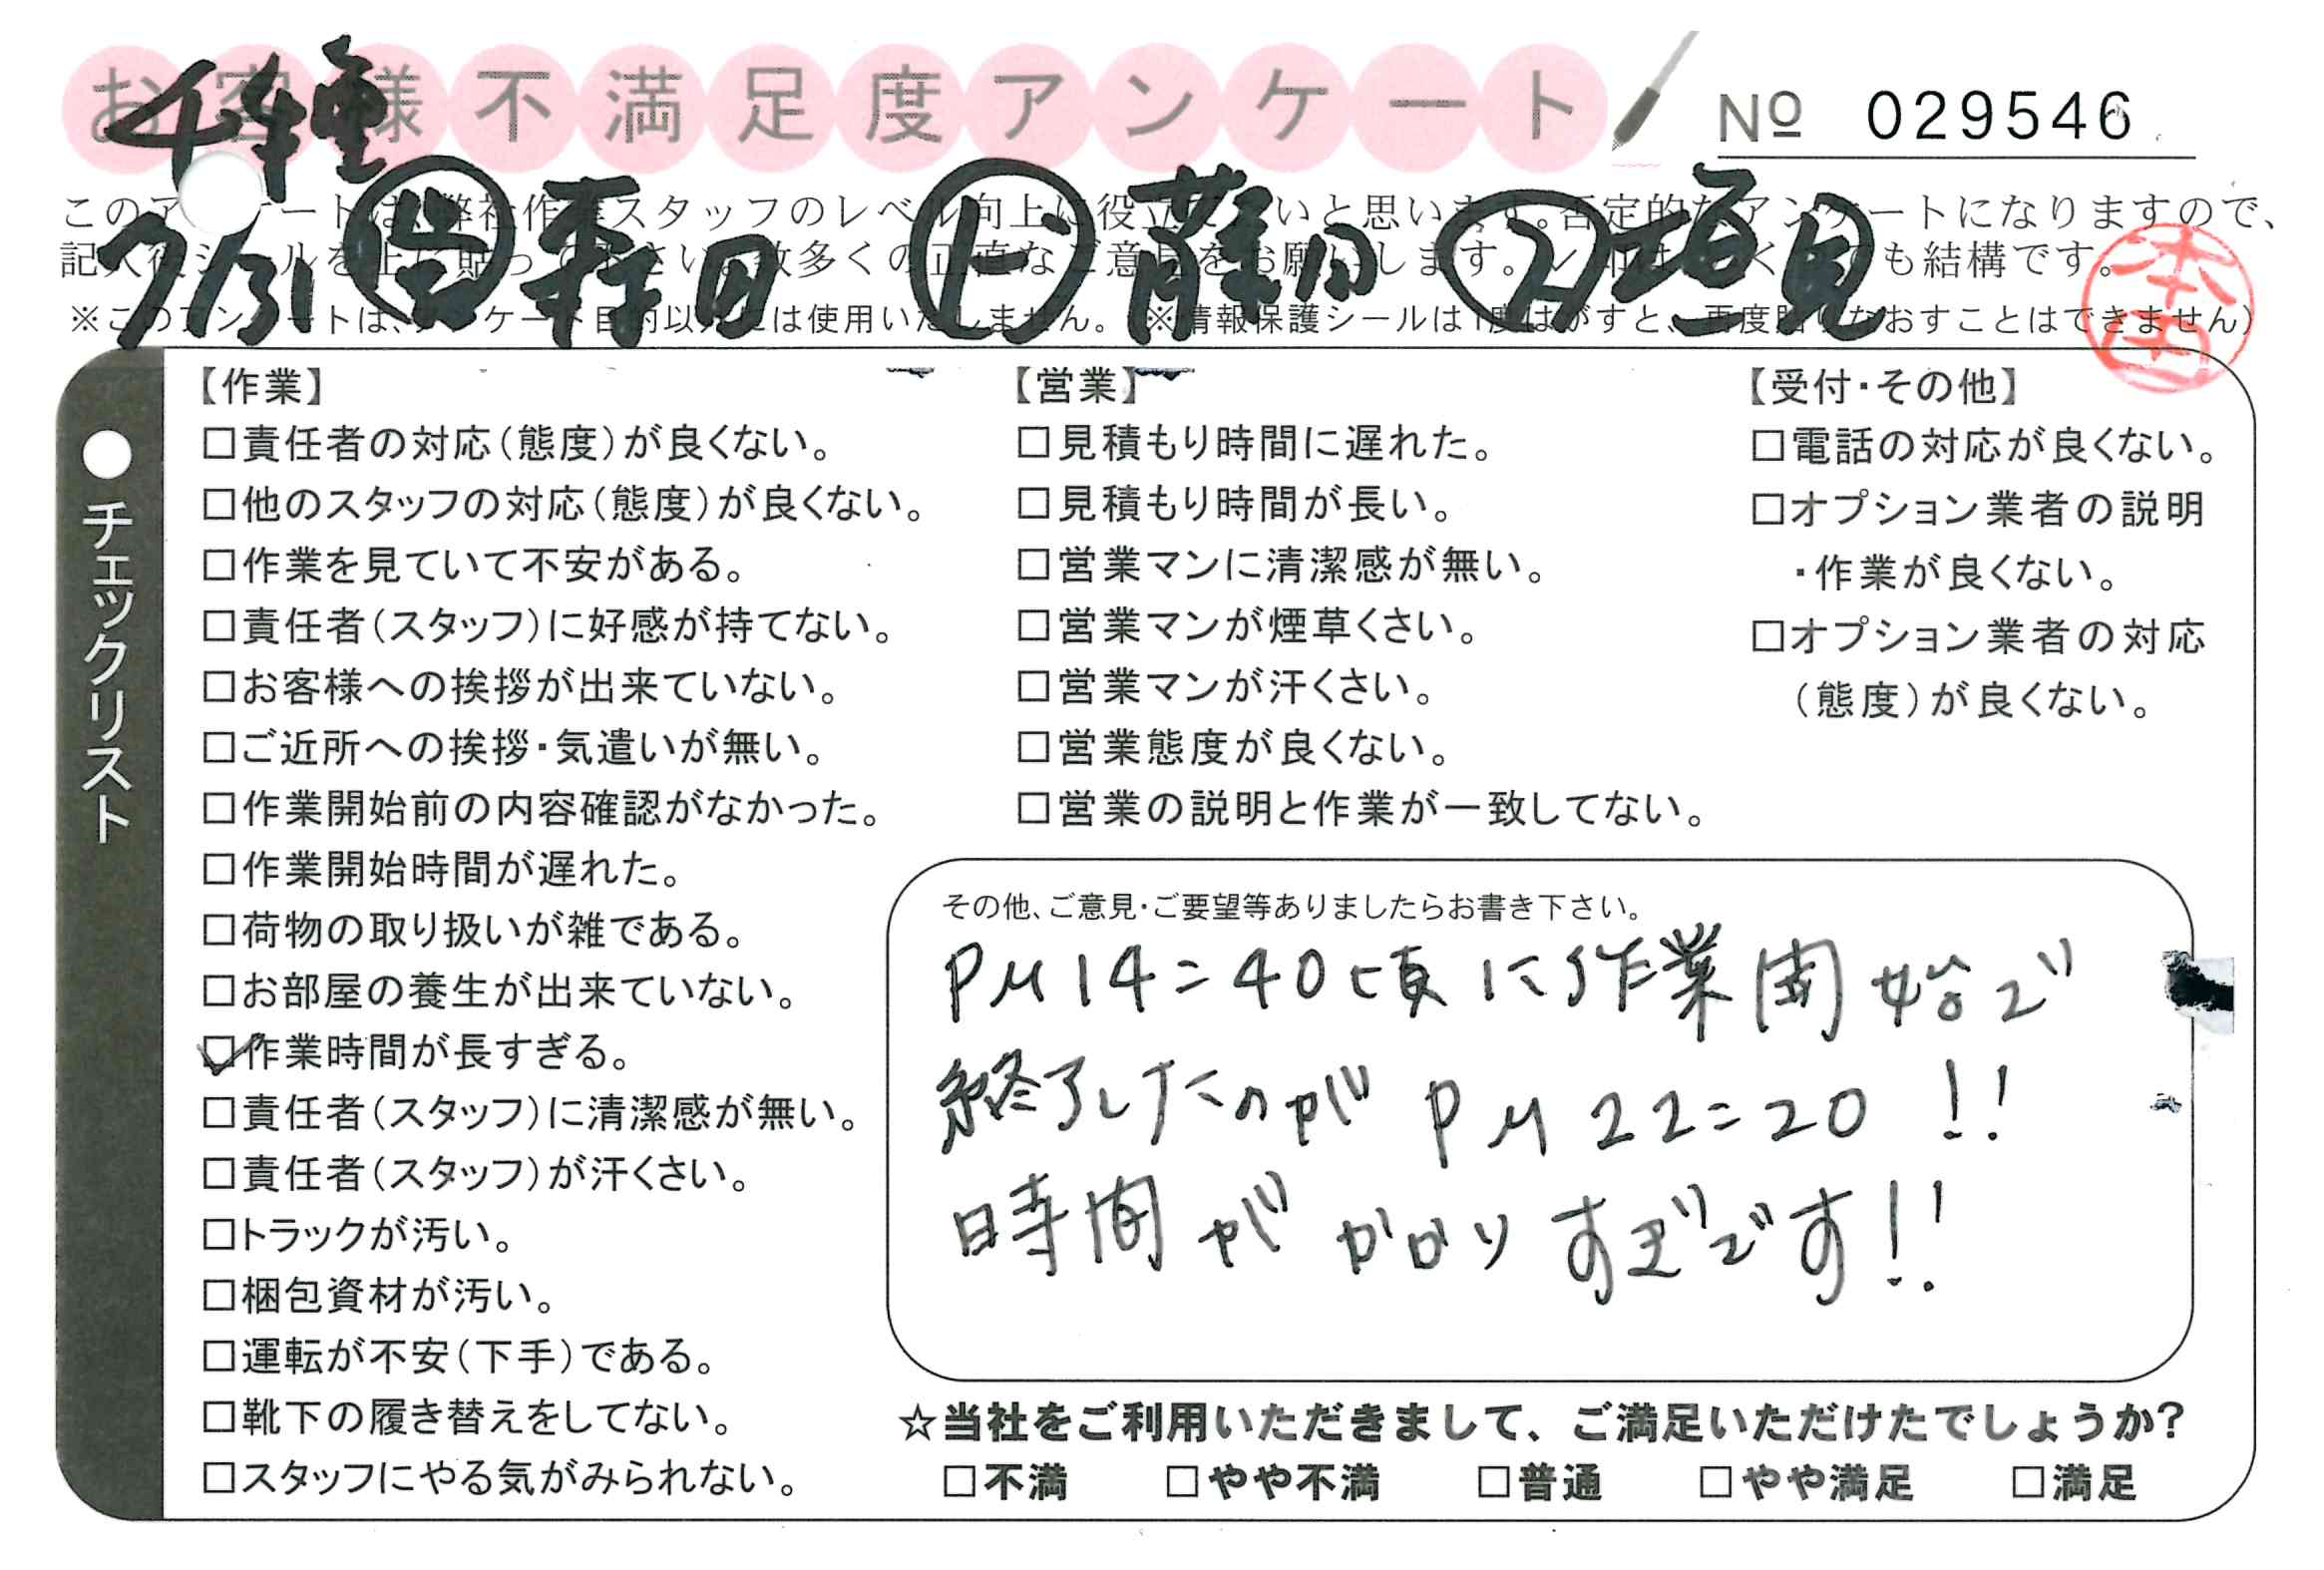 お客様不満足度アンケート
№ 029546
千種
このアンケートは、弊社作業スタッフのレベル向上に役立てたいと思います。否定的なアンケートになりますので、
記入後シールを上に貼って下さい。数多くの正直なご意見をお願いします。
も結構です。
7/31 営 森田 ト 藤田
※このアンケートは、アンケート目的以外には使用いたしません。(※情報保護シールは1度はがすと、再度貼りなおすことはできません)
本田
チェックリスト
【作業】
□責任者の対応(態度)が良くない。
□他のスタッフの対応(態度)が良くない。
□作業を見ていて不安がある。
□責任者(スタッフ)に好感が持てない。
□お客様への挨拶が出来ていない。
□ご近所への挨拶・気遣いが無い。
□作業開始前の内容確認がなかった。
□作業開始時間が遅れた。
□荷物の取り扱いが雑である。
□お部屋の養生が出来ていない。
☑作業時間が長すぎる。
□責任者(スタッフ)に清潔感が無い。
□責任者(スタッフ)が汗くさい。
□トラックが汚い。
□梱包資材が汚い。
□運転が不安(下手)である。
□靴下の履き替えをしてない。
□スタッフにやる気がみられない。
【営業】
□見積もり時間に遅れた。
□見積もり時間が長い。
□営業マンに清潔感が無い。
□営業マンが煙草くさい。
□営業マンが汗くさい。
□営業態度が良くない。
□営業の説明と作業が一致してない。
【受付・その他】
□電話の対応が良くない。
□オプション業者の説明
・作業が良くない。
□オプション業者の対応
(態度)が良くない。
その他、ご意見・ご要望等ありましたらお書き下さい。
PM 14:40頃に作業開始で
終了したのが PM 22:20 !!
時間がかかりすぎです!!
☆当社をご利用いただきまして、ご満足いただけたでしょうか?
□不満 □やや不満 □普通 □やや満足 □満足